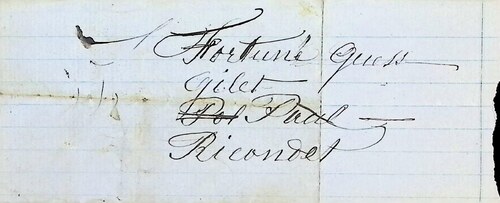 Fortuné Guess
Gilet
Pol Paul —
Ricondet